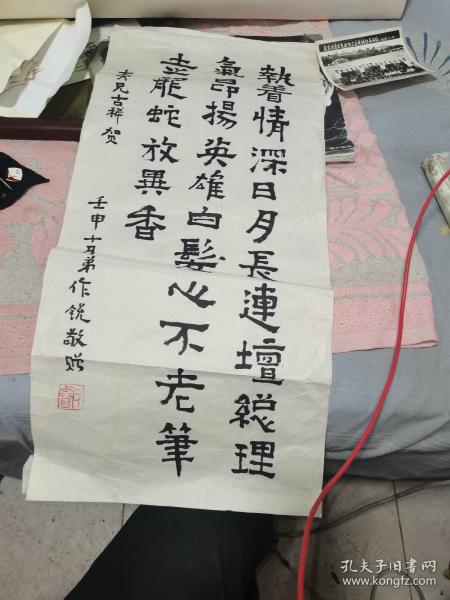 執着情深日月長連壇總理
氣昂揚英雄白髮心不老筆
走龍蛇放異香
老兄古稀賀
壬申十月弟作銳敬贈
孔夫子旧书网
www.kongfz.com